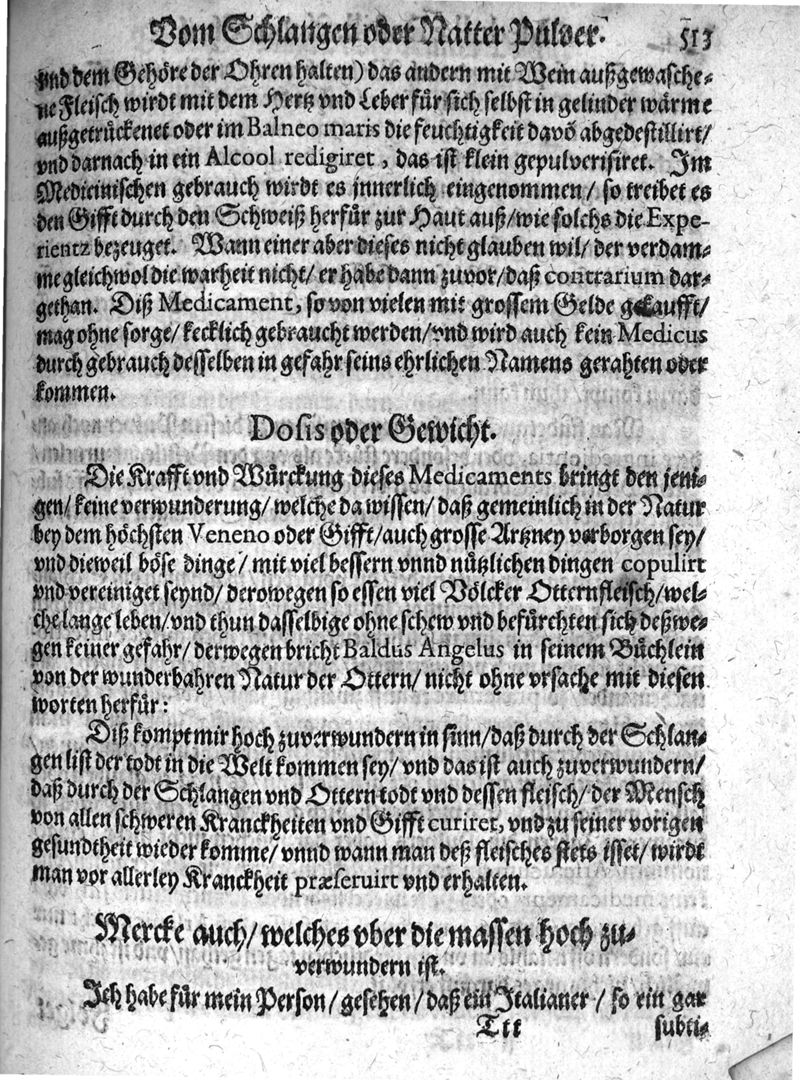 Vom Schlangen oder Natter Pulver. 513
vnd dem Gehöre der Ohren halten) das andern mit Wein außgewasche-
ne Fleisch wirdt mit dem Hertz vnd Leber für sich selbst in gelinder wärme
außgetrückenet oder im Balneo maris die feuchtigkeit davō abgedestillirt/
vnd darnach in ein Alcool redigiret, das ist klein gepulverisiret. Im
Medicinischen gebrauch wirdt es innerlich eingenommen/ so treibet es
den Gifft durch den Schweiß herfür zur Haut auß/ wie solchs die Expe-
rientz bezeuget. Wann einer aber dieses nicht glauben wil/ der verdam-
me gleichwol die warheit nicht/ er habe dann zuvor/ daß contrarium dar-
gethan. Diß Medicament, so von vielen mit grossem Gelde gekaufft/
mag ohne sorge/ kecklich gebraucht werden/ vnd wird auch kein Medicus
durch gebrauch desselben in gefahr seins ehrlichen Namens gerahten oder
kommen.
Dosis oder Gewicht.
Die Krafft vnd Würckung dieses Medicaments bringt den jeni-
gen/ keine verwunderung/ welche da wissen/ daß gemeinlich in der Natur
bey dem höchsten Veneno oder Gifft/ auch grosse Artzney verborgen sey/
vnd dieweil böse dinge/ mit viel bessern vnnd nützlichen dingen copulirt
vnd vereiniget seynd/ derowegen so essen viel Völcker Otternfleisch/ wel-
che lange leben/ vnd thun dasselbige ohne schew vnd befürchten sich deßwe-
gen keiner gefahr/ derwegen bricht Baldus Angelus in seinem Büchlein
von der wunderbahren Natur der Ottern/ nicht ohne vrsache mit diesen
worten herfür:
Diß kompt mir hoch zuverwundern in sinn/ daß durch der Schlan-
gen list der todt in die Welt kommen sey/ vnd das ist auch zuverwundern/
daß durch der Schlangen vnd Ottern todt vnd dessen fleisch/ der Mensch
von allen schweren Kranckheiten vnd Gifft curiret, vnd zu seiner vorigen
gesundtheit wieder komme/ vnnd wann man deß fleisches stets isset/ wirdt
man vor allerley Kranckheit præservirt vnd erhalten.
Mercke auch/ welches vber die massen hoch zu-
verwundern ist.
Ich habe für mein Person/ gesehen/ daß ein Italianer/ so ein gar
Ttt subti-